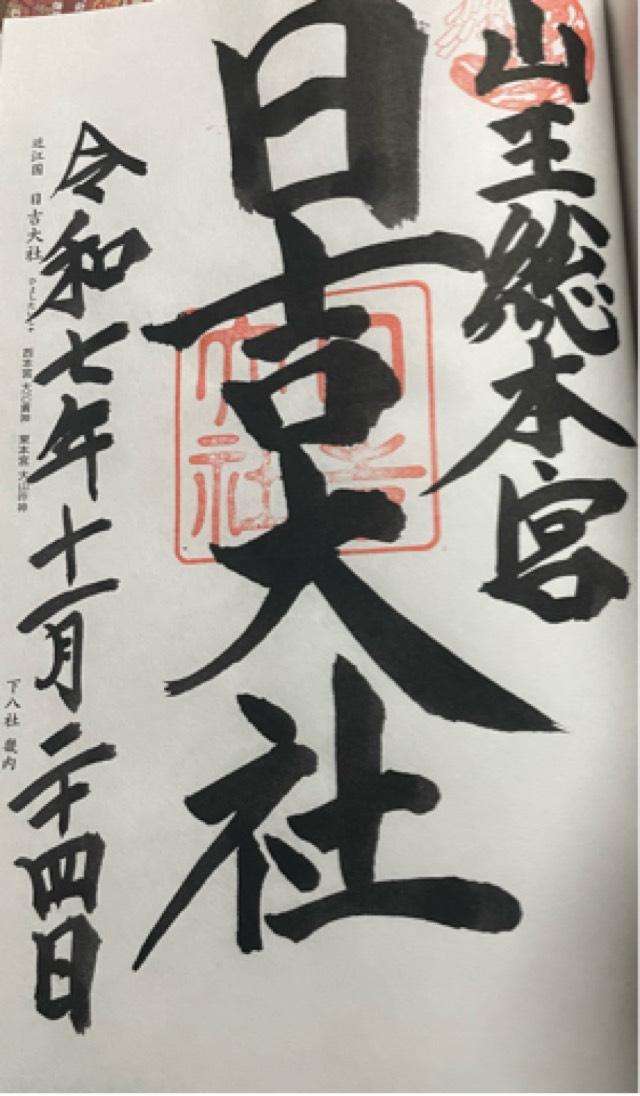 山王総本宮
日吉大社
日吉大社
令和七年十一月二十四日
近江国 日吉大社 ひよしたいしゃ 西本宮 大己貴神 東本宮 大山咋神
下八社 畿内